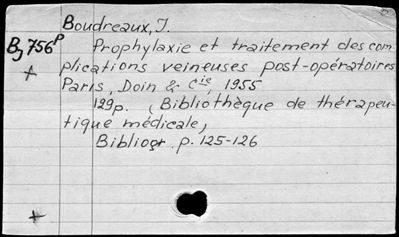 Boudreaux, J.
Bj 756 P
Prophylaxie et traitement des com
plications veineuses post-opératoires
Paris, Doin & Cie, 1955
129p. (Bibliothèque de thérapeu-
tique médicale,
Bibliogr. p. 125-126